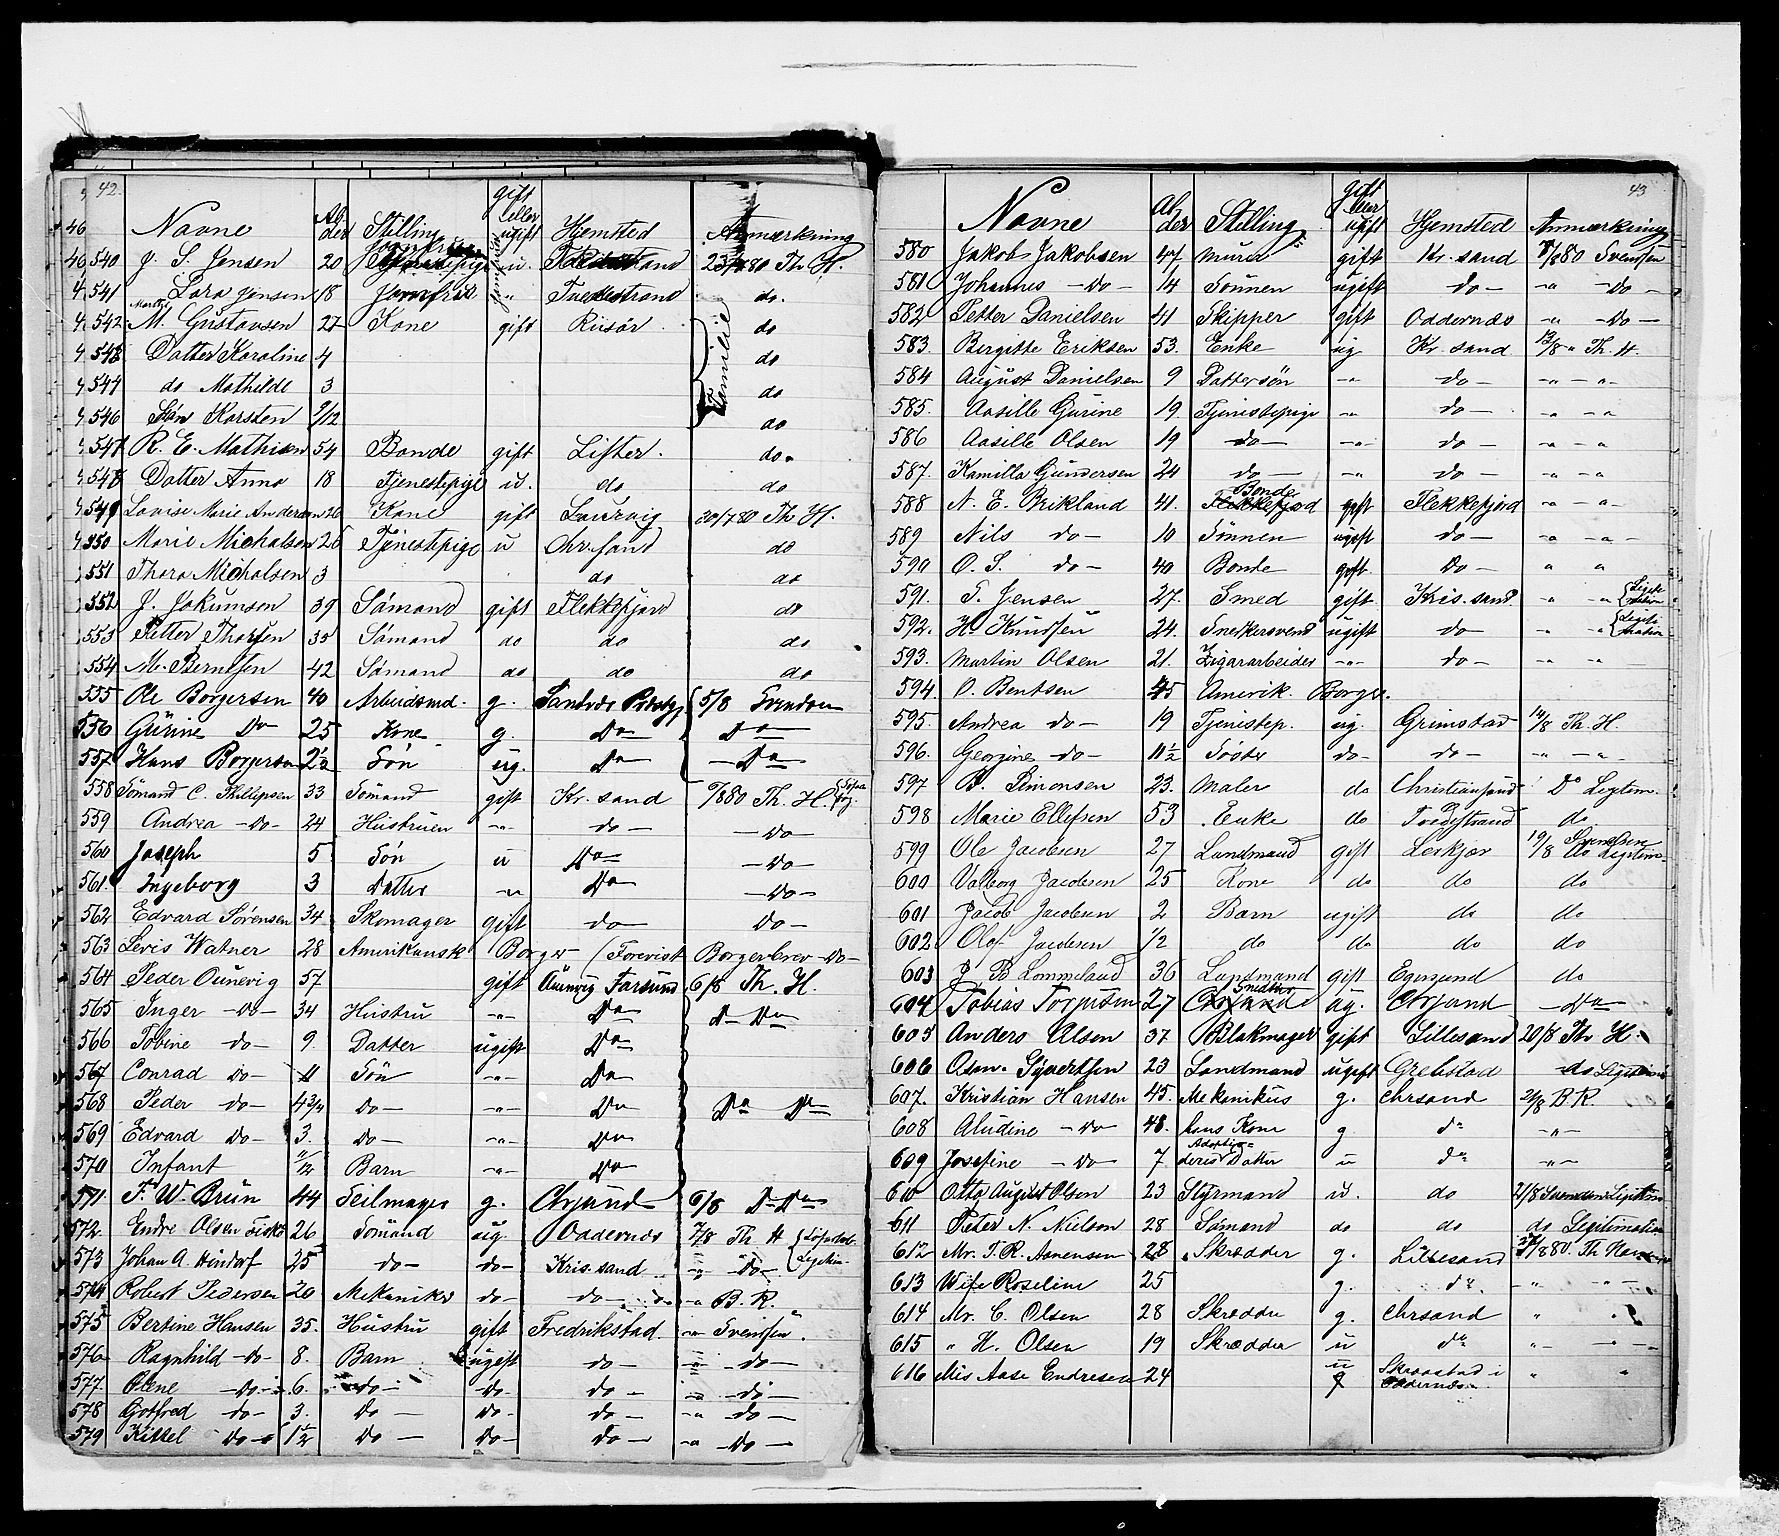 42.
Navne Alder Stilling gift eller ugift Hjemsted Anmærkning
540 J. S. Jensen 20 u. 23/7 80 Th. H.
541 Lara Jensen 18 Jomfru " Tvedestrand do.
542 Marthe M. Gustavsen 27 Kone gift Riisör do
543 Datter Karoline 4 do
544 do Mathilde 3 do
Familie
546 Søn Karsten 9/12 do
547 R. E. Mathisen 54 Bonde gift Lister. do.
548 Datter Anna 18 Tjenestepige u. do do
549 Lovise Marie Andersen 26 Kone gift Laurvig 30/7 80 Th. H.
550 Marie Michalsen 26 Tjenestepige u Chr.sand do
551 Thora Michalsen 3 do do
552 J. Jokumsen 39 Sömand gift Flekkefjord do
553 Petter Thorsen 35 Sömand do do do
554 M. Berntsen 42 Sömand do do do
555 Ole Borgersen 40 Arbeidsmd. g. 5/8 Svendsen
556 Gurine Do 25 Kone g. Do Do
557 Hans Borgersen 2½ Sön ug. Do Do
558 Sömand C. Phillipsen 33 Sömand gift Kr. sand 6/8 80 Th. H.
559 Andrea do 24 Hustruen -"- do do
560 Joseph 5 Sön u Do do
561 Ingeborg 3 Datter -"- Do do
562 Edvard Sørensen 34 Skomager gift do do
563 Levis Watner 28 Amerikansk Borger (Forevist Borgerbrev do
564 Peder Ounevig 57 gift Farsund 6/8 Th. H.
565 Inger do 34 Hustru -"- Do D Do
566 Tobine do 9 Datter ugift Do
567 Conrad do 11 Sön -"- Do
568 Peder do 4 3/4 do -"- Do Do Do
569 Edvard do 3. do -"- Do
570 Infant "/12 Barn -"- Do
571 F. W. Brun 44 Seilmager g. Chrsand 6/8 D Do
572. Endre Olsen 26 Sömand ug. Oddernæs 7/8 Th H
573 Johan A. Hindorf 25 do do Kris.sand " do
574 Robert Pedersen 20 Mekaniker do do -"- B. R.
575 Bertine Hansen 35. Hustru gift Fredrikstad. -"- Svensen.
576 Ragnhild do 8. Barn ugift do " do
577. Elene do 6. do do do " do
578 Gotfred do 3. do do do -"- do
579 Kittel do 1½ do do do -"- do
43
Navne Alder Stilling gift eller ugift Hjemsted Anmærkning
580 Jakob Jakobsen 47 Murer gift Kr. sand 7/8 80 Svensen
581 Johannes do 14 Sønnen ugift do -"- do
582 Petter Danielsen 41 Skipper gift Oddernæs -"- do
583. Birgitte Eriksen 53. Enke ug Kr. sand 13/8 " Th. H.
584 August Danielsen 9 Dattersön -"- do -"- -"-
585. Aasille Gurine 19. Tjenistepige -"- do -"- -"
586 Aasille Olsen 19 do -"- do -"- -"
587. Kamilla Gundersen 24 do -"- do -"- -"
588 N. E. Brikland 41. Bonde gift Flekkefjord -"- -"-
589 Nils do 10 Sønnen ugift do -"- -"-
590 O. S. do 40 Bonde gift Do " "
591. S. Jensen 27. Smed gift Kris. sand " -" {Legitimation
592. H. Knudsen 24. Snekersvend ugift do " -" {Legitimation
593. Martin Olsen 21. Zigararbeider -"- do -"- -"
594 O. Bentsen 45 Amerik. Borger.
595. Andrea do 19 Tjenistep. ug. Grimstad 14/8 Th. H.
596. Georgine do 11½ Søster do do -"- -"-
597 B. Simonsen 23. Maler do Christiansund Do Legtim.
598 Marie Ellefsen 53 Enke do Tvedestrand do.
599 Ole Jacobsen 27 Landmand gift Leskjær 19/8 Svendsen do Legitim.
600 Valborg Jacobsen 25 Kone do do do
601 Jacob Jacobsen 2 Barn ugift do do
602 Olof Jacobsen ½ do do do do
603 J B Lommeland 36 Landmand gift Egersund do
604 Tobias Torjusen 27 Snedker ug. Chrsand Do
605 Anders Alsen 37 Blakmager gift Lillesand 20/8 Th H.
606 Osm. Syvertsen 23 Landmand ugift Grebstad do Legitim
607. Kristian Hansen 45. Mekanikus g. Chrsand 21/8 B R.
608 Aludine do 48. hans Kone g do -"-
609 Josefine do 7 Adoptiverede Datter u do -"-
610 Otto August Olsen 23 Styrmand u. do 21/8 Svendsen Legitim
611 Peter N. Nielsen 28 Sømand do do do Legitimation
612 Mr. T. R. Aanensen 28 Skrædder g. Lillesand /8 80. Th Hansen
613 Wife Roseline 25 g. do. " "
614 Mr. C. Olsen 28 Skrædder g. Chrsand " "
615 " H. Olsen 19 Skrædder u do " "
616 Mis Aase Endresen 24 u g i Oddernæs " "